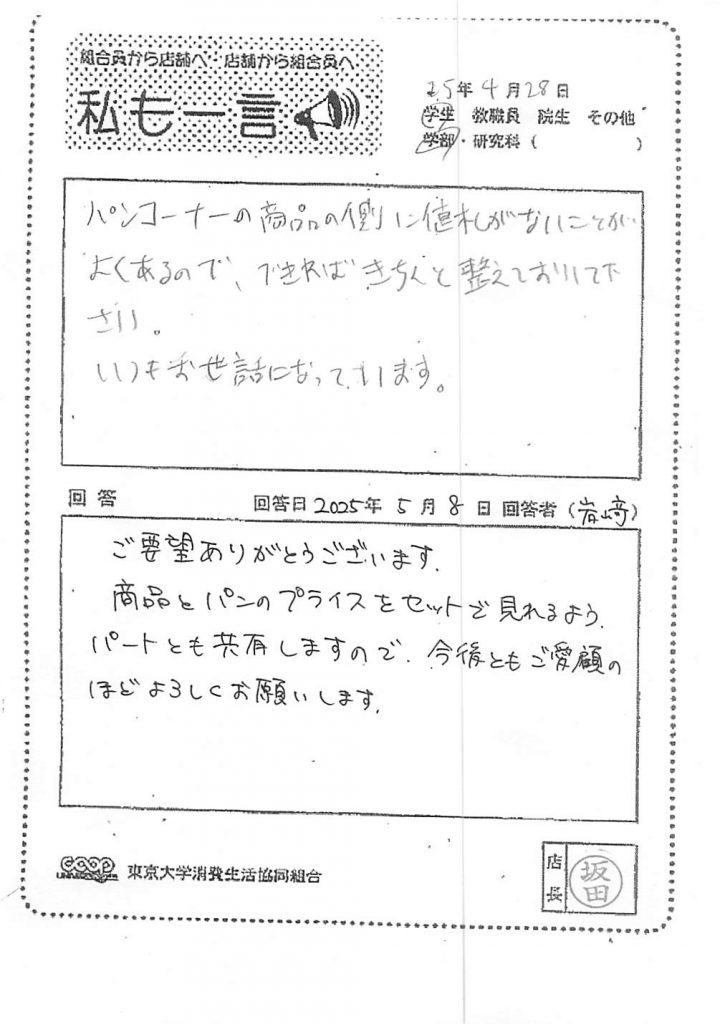 組合員から店舗へ 店舗から組合員へ
私も一言
25年4月28日
学生 教職員 院生 その他
学部・研究科( )
パンコーナーの商品の側に値札がないことが
よくあるので、できればきちんと整えておいて下
さい。
いつもお世話になっています。
回答 回答日2025年5月8日 回答者(岩崎)
ご要望ありがとうございます.
商品とパンのプライスをセットで見れるよう.
パートとも共有しますので.今後ともご愛顧の
ほどよろしくお願いします.
coop 東京大学消費生活協同組合
店長 坂田